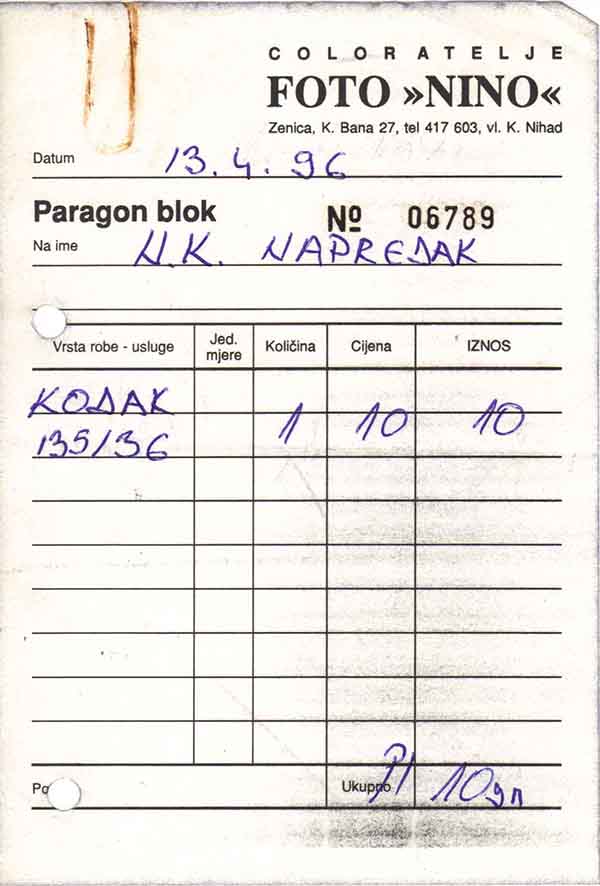 COLOR ATELJE
FOTO »NINO«
Zenica, K. Bana 27, tel 417 603, vl. K. Nihad
Datum 13.4.96
Paragon blok № 06789
Na ime N.K. NAPREDAK
Vrsta robe - usluge Jed. mjere Količina Cijena IZNOS
KODAK
135/36 1 10 10
Ukupno 10